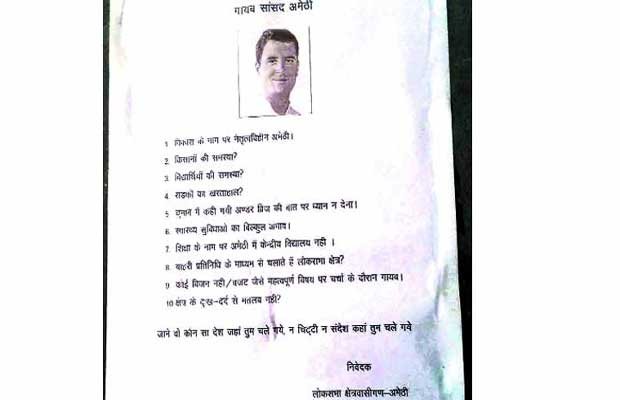 गायब सांसद अमेठी
1 विकास के नाम पर नेतृत्वविहीन अमेठी।
2. किसानों की समस्या?
3. विद्यार्थियों की समस्या?
4 सड़कों का खस्ताहाल?
5 चुनाव में कही गयी अण्डर ब्रिज की बात पर ध्यान न देना।
6. स्वास्थ्य सुविधाओं का बिल्कुल अभाव।
7. शिक्षा के नाम पर अमेठी में केन्द्रीय विद्यालय नही ।
8 बाहरी प्रतिनिधि के माध्यम से चलाते हैं लोकसभा क्षेत्र?
9 कोई विजन नही/बजट जैसे महत्वपूर्ण विषय पर चर्चा के दौरान गायब।
10 क्षेत्र के दुःख-दर्द से मतलब नही?
जाने वो कौन सा देश जहां तुम चले गये, न चिट्टी न संदेश कहां तुम चले गये
निवेदक
लोकसभा क्षेत्रवासीगण–अमेठी